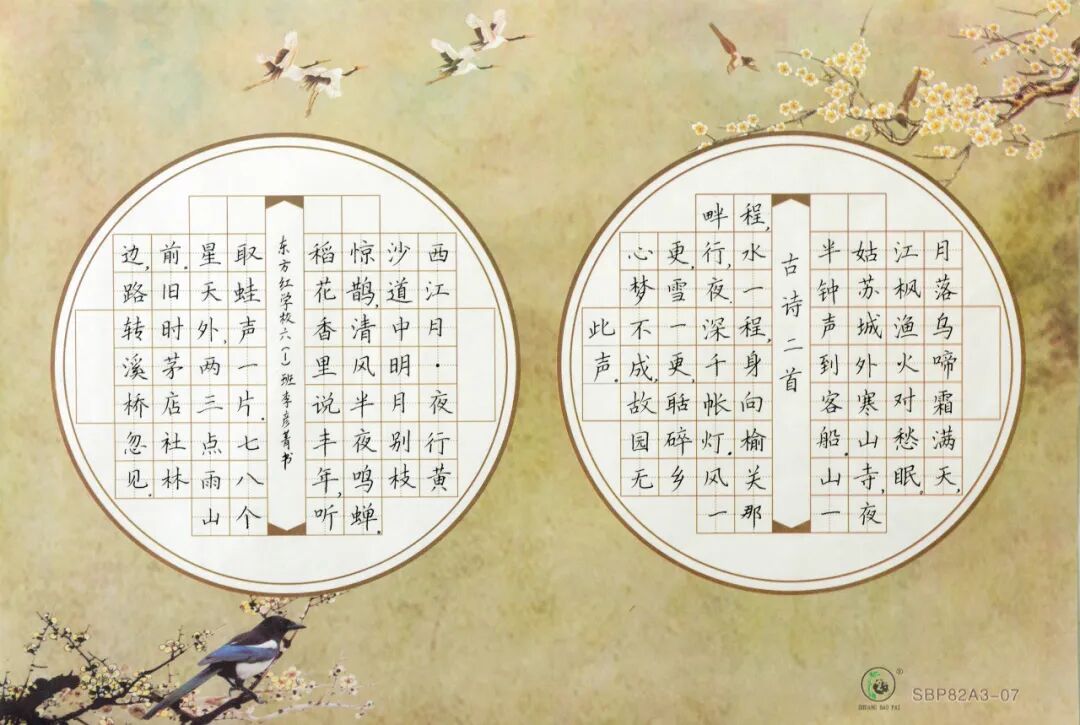 月落乌啼霜满天,
江枫渔火对愁眠。
姑苏城外寒山寺,夜
半钟声到客船。山一
古诗二首
程,水一程,身向榆关那
畔行,夜深千帐灯。风一
更,雪一更,聒碎乡
心梦不成,故园无
此声。
西江月·夜行黄
沙道中明月别枝
惊鹊,清风半夜鸣蝉。
稻花香里说丰年,听
东方红学校六(1)班李彦菁书
取蛙声一片。七八个
星天外,两三点雨山
前。旧时茅店社林
边,路转溪桥忽见。
SHUANG BAO PAI
SBP82A3-07